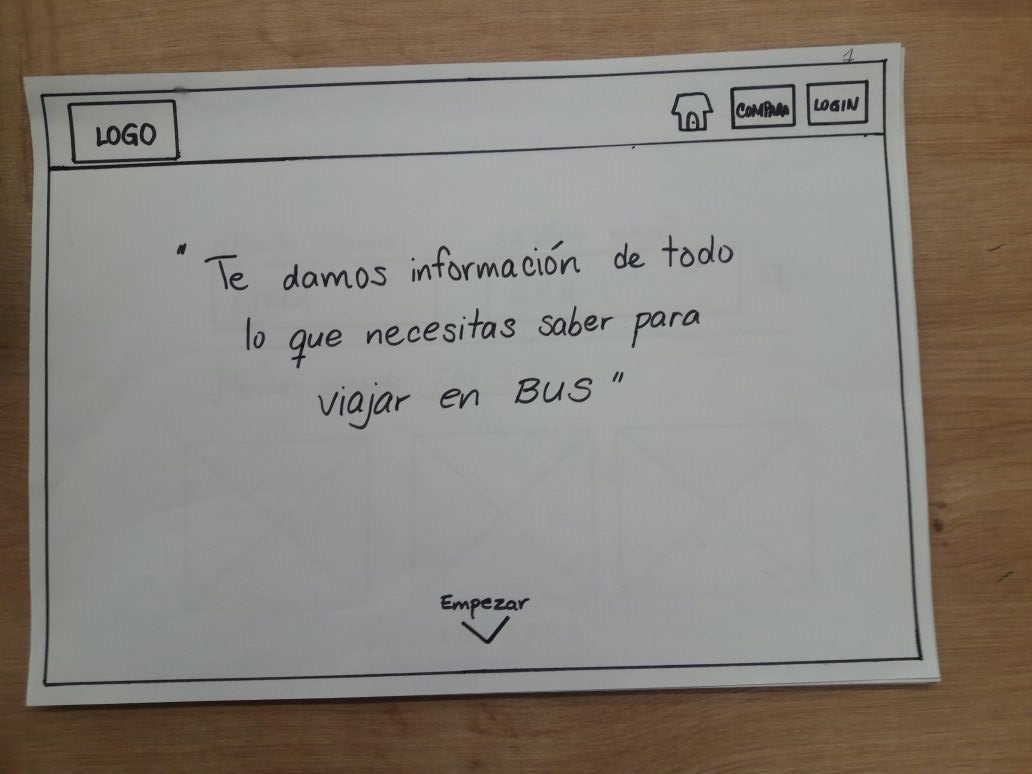 1
LOGO
COMPARA
LOGIN
" Te damos información de todo
lo que necesitas saber para
viajar en BUS "
Empezar